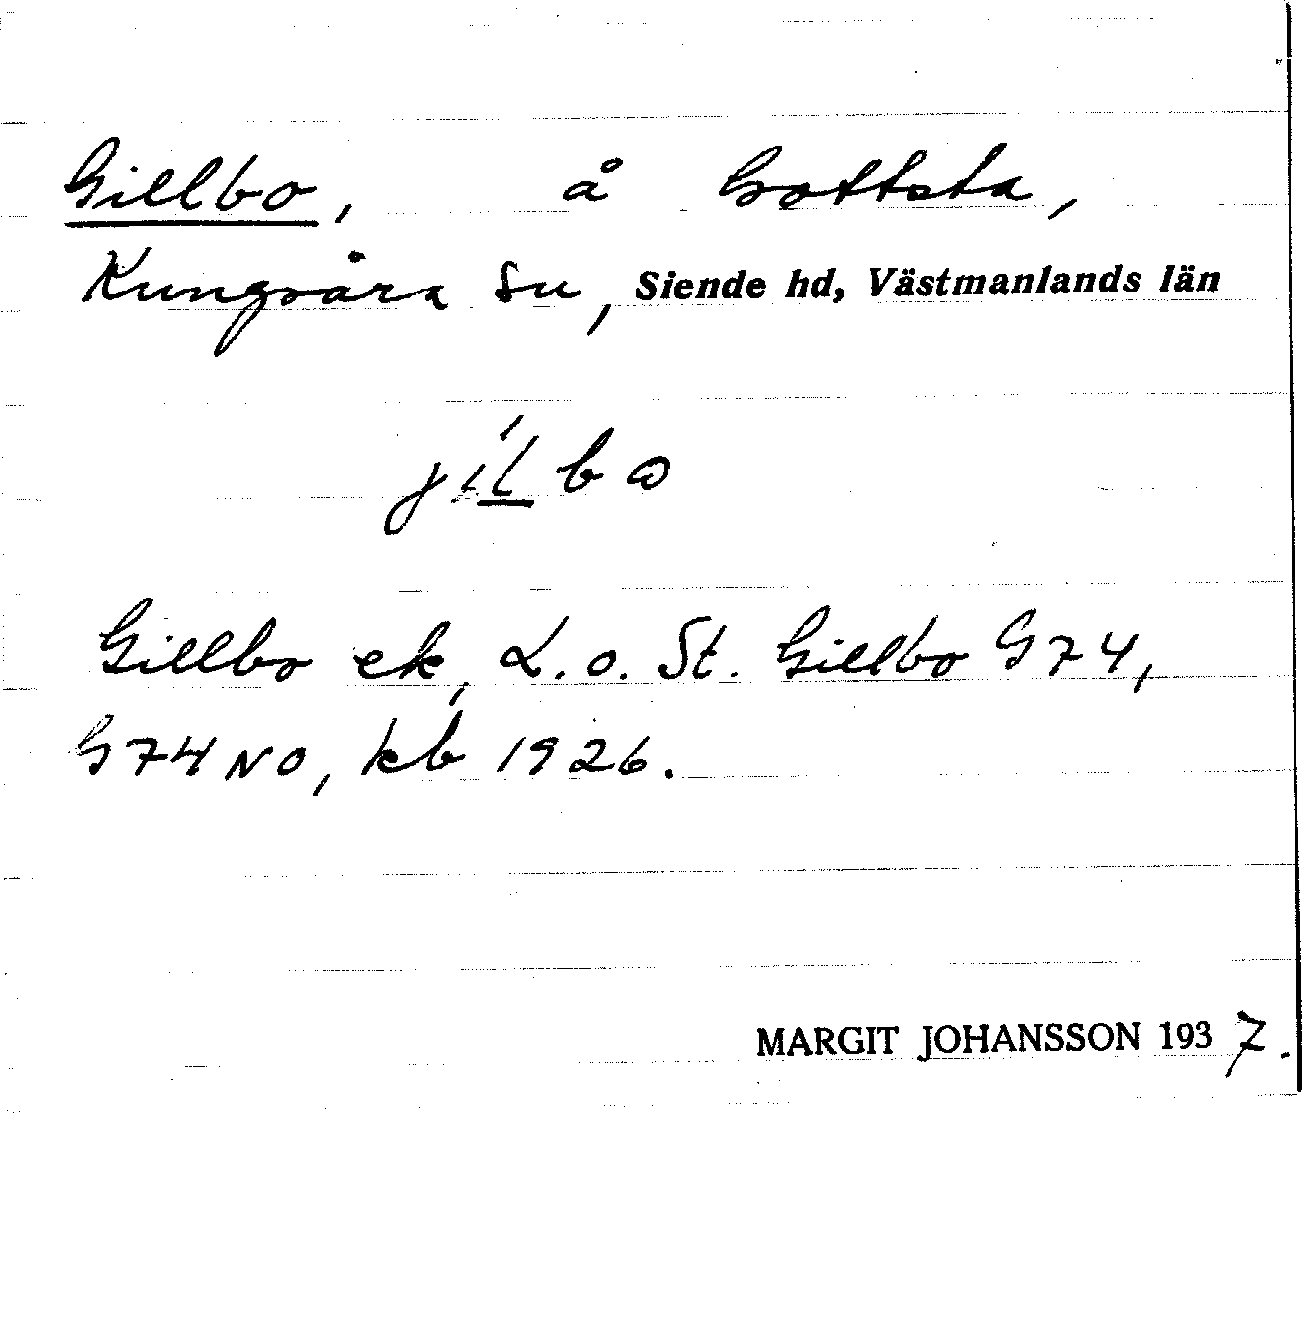 Gillbo, å Gottsta,
Kungsåra Sn, Siende hd, Västmanlands län
jílbω
Gillbo ek, L. o. St. Gillbo G74,
G74NO, kb 1926.
MARGIT JOHANSSON 1937.